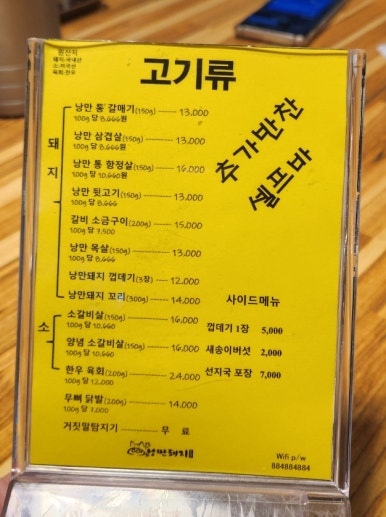 원산지
돼지:국내산
소:미국산
육회:한우
고기류
추가반찬
셀프바
돼지
낭만 통 갈매기(150g) 13,000
100g 당 8,666원
낭만 삼겹살(150g) 13,000
100g 당 8,666원
낭만 통 항정살(150g) 16,000
100g 당 10,660원
낭만 뒷고기(150g) 13,000
100g 당 8,666
갈비 소금구이(200g) 15,000
100g 당 7,500
낭만 목살(150g) 13,000
100g 당 8,666
낭만돼지 껍데기(3장) 12,000
낭만돼지 꼬리(300g) 14,000
소
소갈비살(150g) 16,000
100g 당 10,660
양념 소갈비살(150g) 16,000
100g 당 10,660
한우 육회(200g) 24,000
100g 당 12,000
무뼈 닭발(200g) 14,000
100g 당 7,000
거짓말탐지기 무 료
사이드메뉴
껍데기 1장 5,000
새송이버섯 2,000
선지국 포장 7,000
낭만돼지
Wifi p/w
884884884